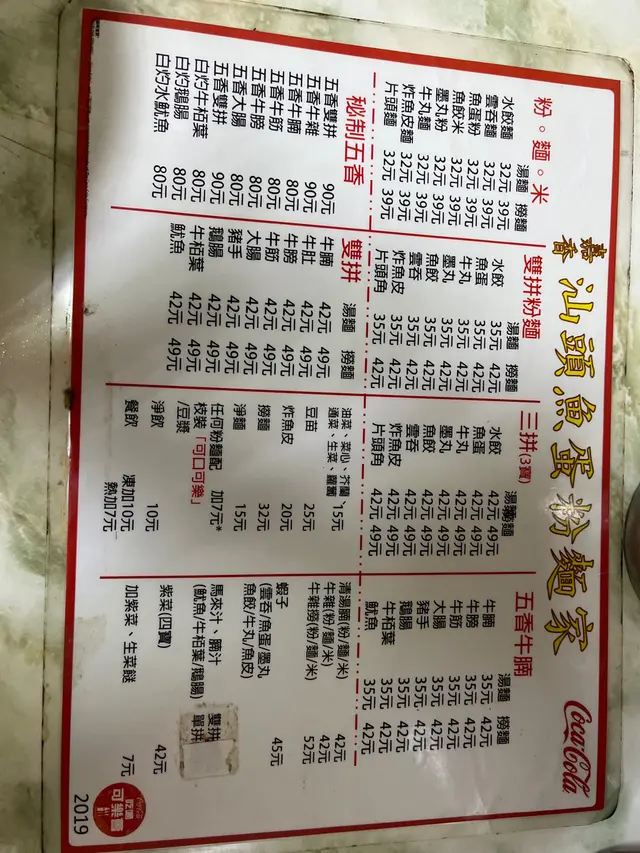 嘉香 汕頭魚蛋粉麵家
Coca-Cola
粉。麵。米
湯麵 撈麵
水餃麵 32元 39元
雲吞麵 32元 39元
魚蛋粉 32元 39元
魚餃米 32元 39元
墨丸粉 32元 39元
牛丸麵 32元 39元
炸魚皮麵 32元 39元
片頭麵 32元 39元
雙拼粉麵
湯麵 撈麵
水餃 35元 42元
魚蛋 35元 42元
牛丸 35元 42元
墨丸 35元 42元
魚餃 35元 42元
雲吞 35元 42元
炸魚皮 35元 42元
片頭角 35元 42元
三拼(3寶)
湯麵 撈麵
水餃 42元 49元
魚蛋 42元 49元
牛丸 42元 49元
墨丸 42元 49元
魚餃 42元 49元
雲吞 42元 49元
炸魚皮 42元 49元
片頭角 42元 49元
五香牛腩
湯麵 撈麵
牛腩 35元 42元
牛膀 35元 42元
牛筋 35元 42元
大腸 35元 42元
豬手 35元 42元
鵝腸 35元 42元
牛栢葉 35元 42元
魷魚 35元 42元
秘制五香
五香雙拼 90元
五香牛雜 90元
五香牛腩 80元
五香牛筋 80元
五香牛膀 80元
五香大腸 80元
五香雙拼 90元
白灼牛栢葉 80元
白灼鵝腸 80元
白灼水魷魚 80元
雙拼
湯麵 撈麵
牛腩 42元 49元
牛肚 42元 49元
牛膀 42元 49元
牛筋 42元 49元
大腸 42元 49元
豬手 42元 49元
鵝腸 42元 49元
牛栢葉 42元 49元
魷魚 42元 49元
油菜、菜心、芥蘭、
通菜、生菜、蘿蔔 15元
豆苗 25元
炸魚皮 20元
撈麵 32元
淨麵 15元
任何粉麵配 加7元*
枝裝「可口可樂」
/豆漿
淨飲 10元
餐飲 凍加10元
熱加7元
清湯腩(粉/麵/米) 42元
牛雜(粉/麵/米) 42元
牛雜撈(粉/麵/米) 52元
蝦子
(雲吞/魚蛋/墨丸
魚餃/牛丸/魚皮) 45元
馬夾汁、腩汁
(魷魚/牛栢葉/鵝腸)
雙拼
單拼
紫菜(四寶) 42元
加紫菜、生菜餸 7元
Coca-Cola
吃喝
可樂
2019